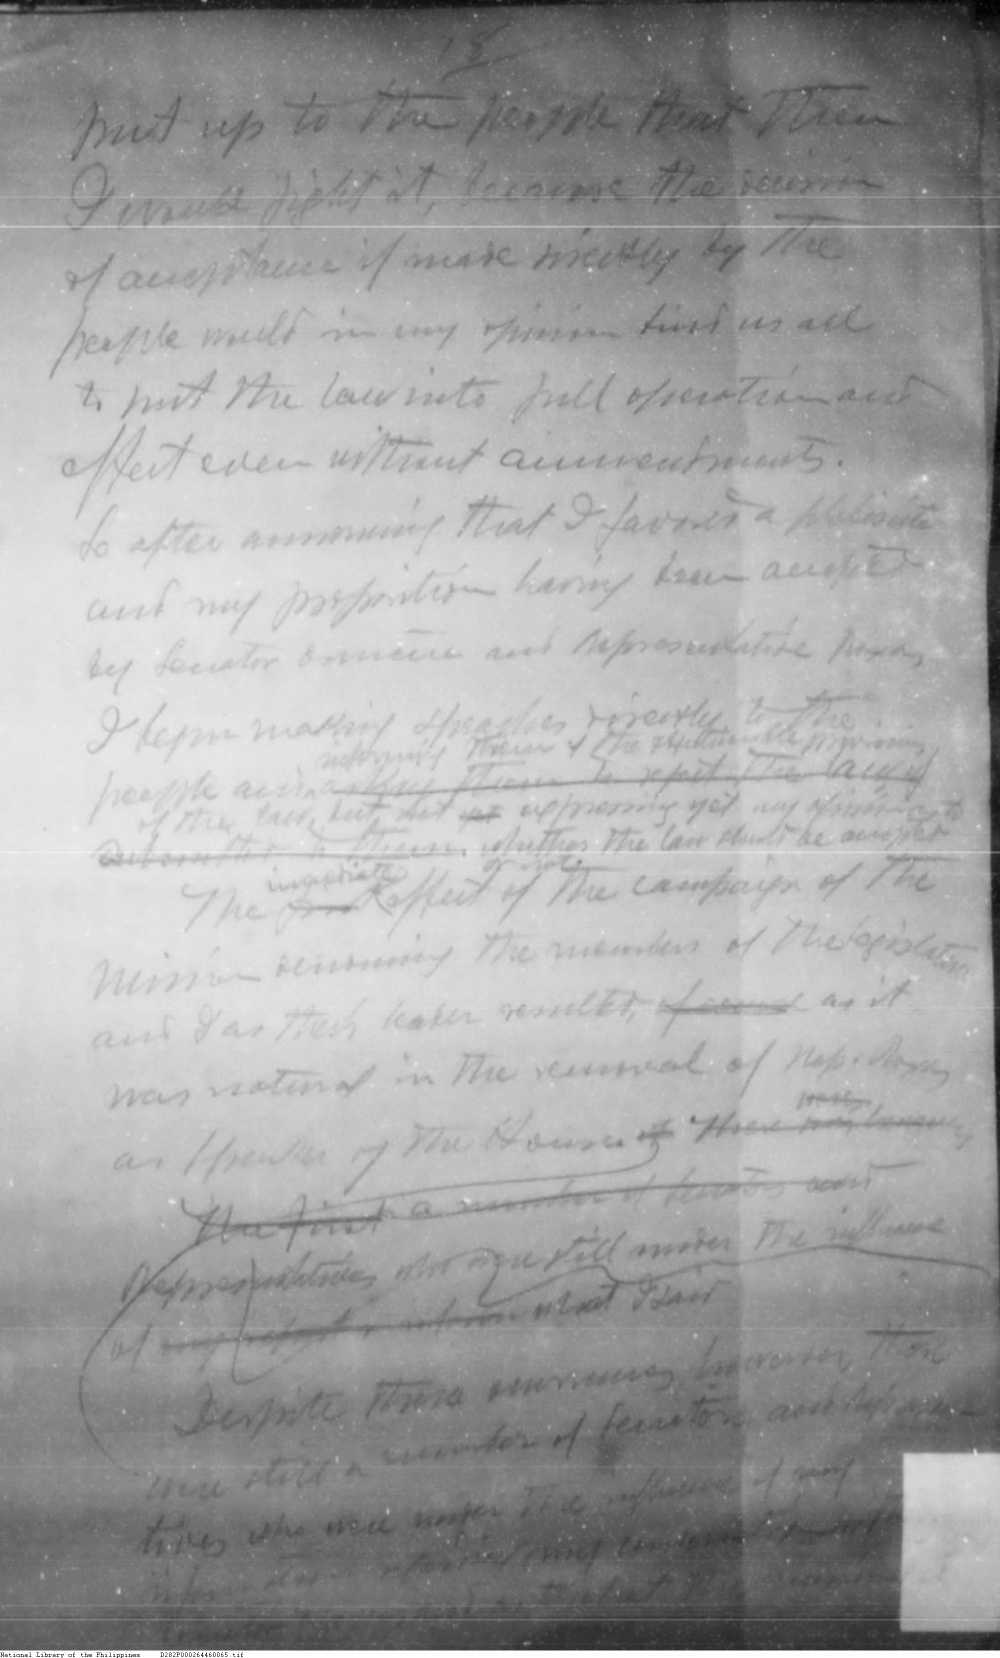 15
put up to the people that then
I would fight it, because the decision
of acceptance if made directly by the
people would in my opinion bind us all
to put the law into full operation and
effect even without ammendments.
So after announcing that I favored a plebiscite
and my proposition having been accepted
by Senator Osmeña and Representative Roxas,
I began making speeches directly to the
informing them of the objectionable provisions
people and asking them to reject the law if
of the law, but not expressing yet my opinion as to
submitted to them. whether the law should be accepted
or not.
immediate
The effect of the campaign of the
Mission denouncing the members of the Legislature
and I as their leader resulted, of course as it
was natural in the removal of Rep. Roxas
as Speaker of the House of There
were
The first a number of Senators and
Representatives who were still under the influence
of what I said
Despite these occurrences, however, there
were still a number of Senators and Representa-
tives who were under the influence of my
National Library of the Philippines D282P000264460065.tif